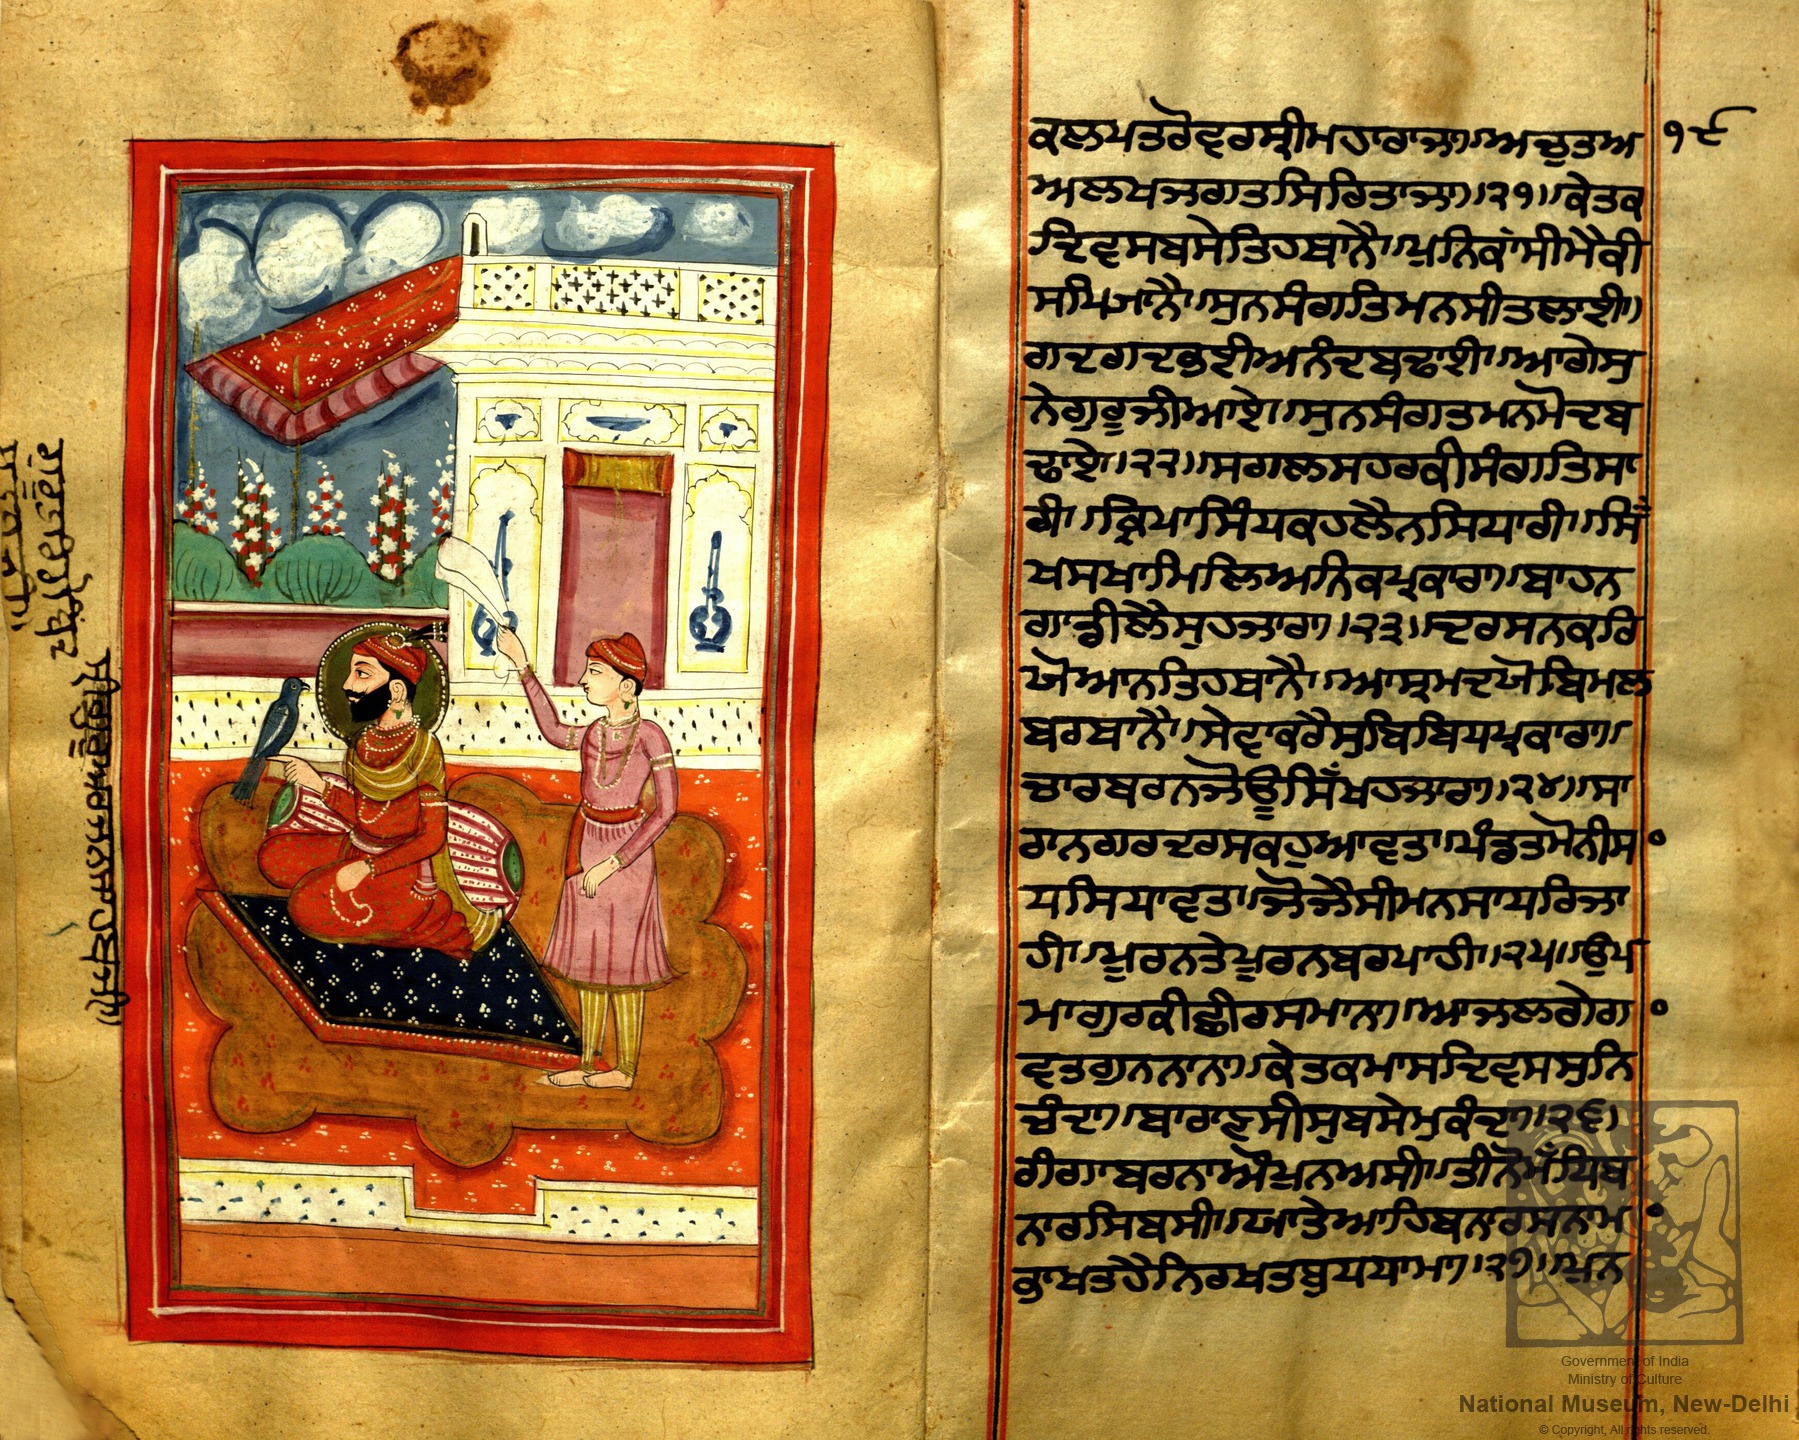 ਕਲਪਤਰੋਵਰਸ੍ਰੀਮਹਾਰਾਜਾ॥ਅਚੁਤਅ ੧੯
ਅਲਖਜਗਤਸਿਰਿਤਾਜਾ॥੨੧॥ਕੇਤਕ
ਦਿਵਸਬਸੇਤਿਹਥਾਨੈ॥ਪੁਨਿਕਾਂਸੀਮੈਕੀ
ਸਧਿਜਾਨੈ॥ਸੁਨਸੰਗਤਿਮਨਸੀਤਲਾਈ॥
ਗਦਗਦਭਈਅਨੰਦਬਢਾਈ॥ਆਗੇਸੁ
ਨੇਗੁਰੂਜੀਆਏ॥ਸੁਨਸੰਗਤਮਨਮੋਦਬ
ਢਾਏ॥੨੨॥ਸਗਲਸਹਰਕੀਸੰਗਤਿਸਾ
ਰੀ॥ਕ੍ਰਿਪਾਸਿੰਧਕਹਲੈਨਸਿਧਾਰੀ॥ਸਿੰ
ਖਸਖਾਮਿਲਿਅਨਿਕਪ੍ਰਕਾਰਾ॥ਬਾਹਨ
ਗਾਡੀਲੈਸੁਹਜਾਰਾ॥੨੩॥ਦਰਸਨਕਰਿ
ਯੋਆਨਤਿਹਥਾਨੈ॥ਆਸ੍ਰਮਦਯੋਬਿਮਲ
ਬਰਬਾਨੈ॥ਸੇਵਾਕਰੈਸੁਬਿਬਿਧਪ੍ਰਕਾਰਾ॥
ਚਾਰਬਰਨਜੋਊਸਿੱਖਹਜਾਰਾ॥੨੪॥ਸਾ
ਰਾਨਗਰਦਰਸਕਹੁਆਵਤ॥ਪੰਡਤਮੋਨੀਸ
ਧਸਿਧਾਵਤ॥ਜੋਜੈਸੀਮਨਸਾਧਰਿਜਾ
ਹੀ॥ਪੂਰਨਤੇਪੂਰਨਬਰਪਾਹੀ॥੨੫॥ਉਪ
ਮਾਗੁਰਕੀਛੀਰਸਮਾਨਾ॥ਆਜਲਗੇਗ
ਵਤਗੁਨਨਾਨਾ॥ਕੇਤਕਮਾਸਦਿਵਸਸੁਨਿ
ਚੰਦਾ॥ਬਾਰਾਣਸੀਸੁਬਸੇਮੁਕੰਦਾ॥੨੬॥
ਗੰਗਾਬਰਨਾਔਪੁਨਅਸੀ॥ਤੀਨੋਮੱਧਿਬ
ਨਾਰਸਿਬਸੀ॥ਯਾਤੇਆਹਿਬਨਾਰਸਨਾਮ
ਭਾਖਤਹੈਨਿਰਖਤਬੁਧਧਾਮਾ॥੨੭॥ਪੁਨ
Government of India
Ministry of Culture
National Museum, New-Delhi
© Copyright, All rights reserved.